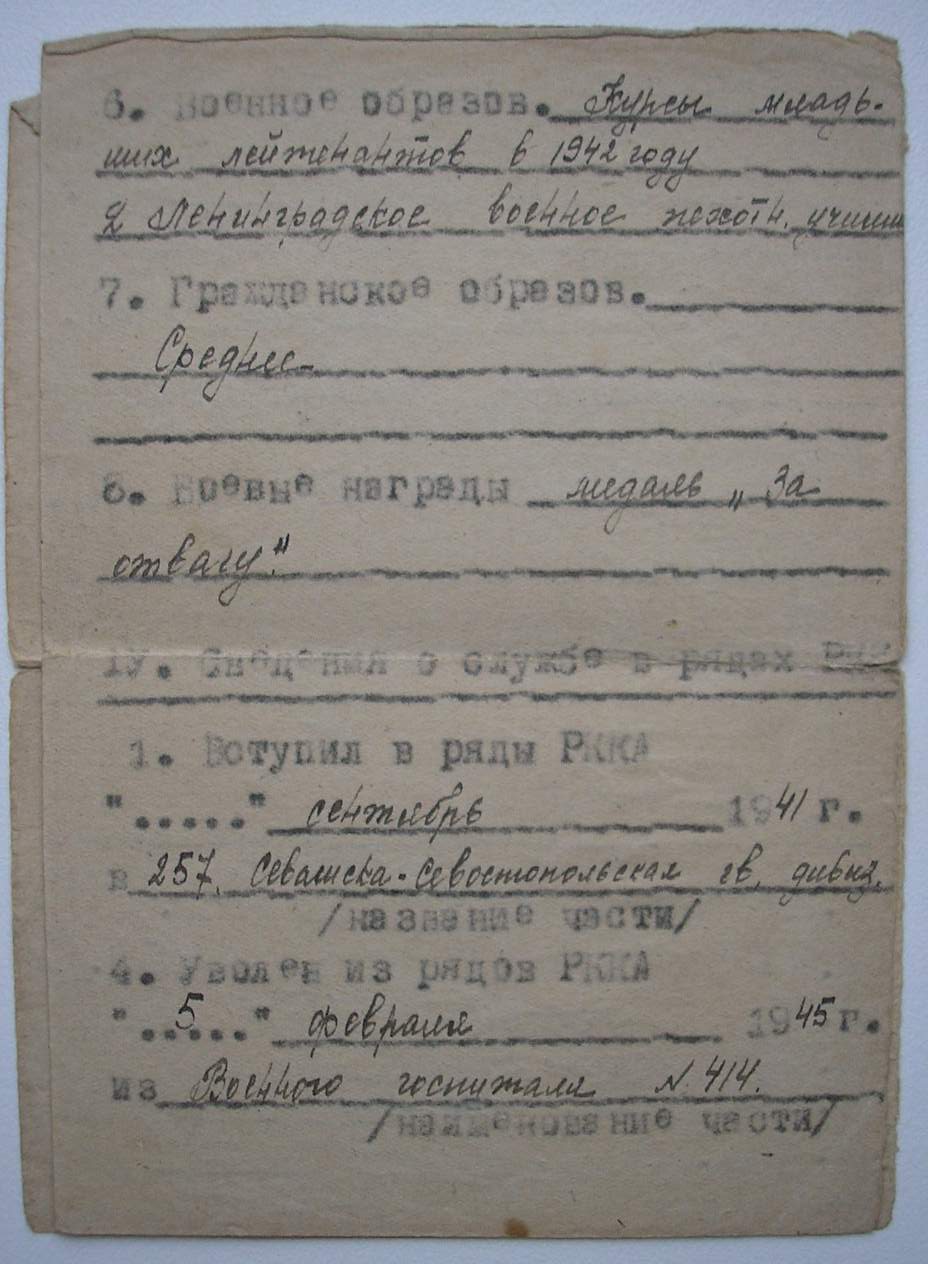 6. Военное образов. Курсы младь-
ших лейтенантов в 1942 году
2 Ленинградское военное пехотн. учили
7. Гражданское образов.
Среднее
8. Боевые награды медаль „За
отвагу."
IУ. Сведения о службе в рядах РККА
1. Вступил в ряды РККА
"....." сентябрь 1941 г.
в 257. Севашска-Севостопольская гв. дивиз.
/название части/
4. Уволен из рядов РККА
"..5..." февраля 1945 г.
из Военного госпиталя N. 414.
/наименование части/